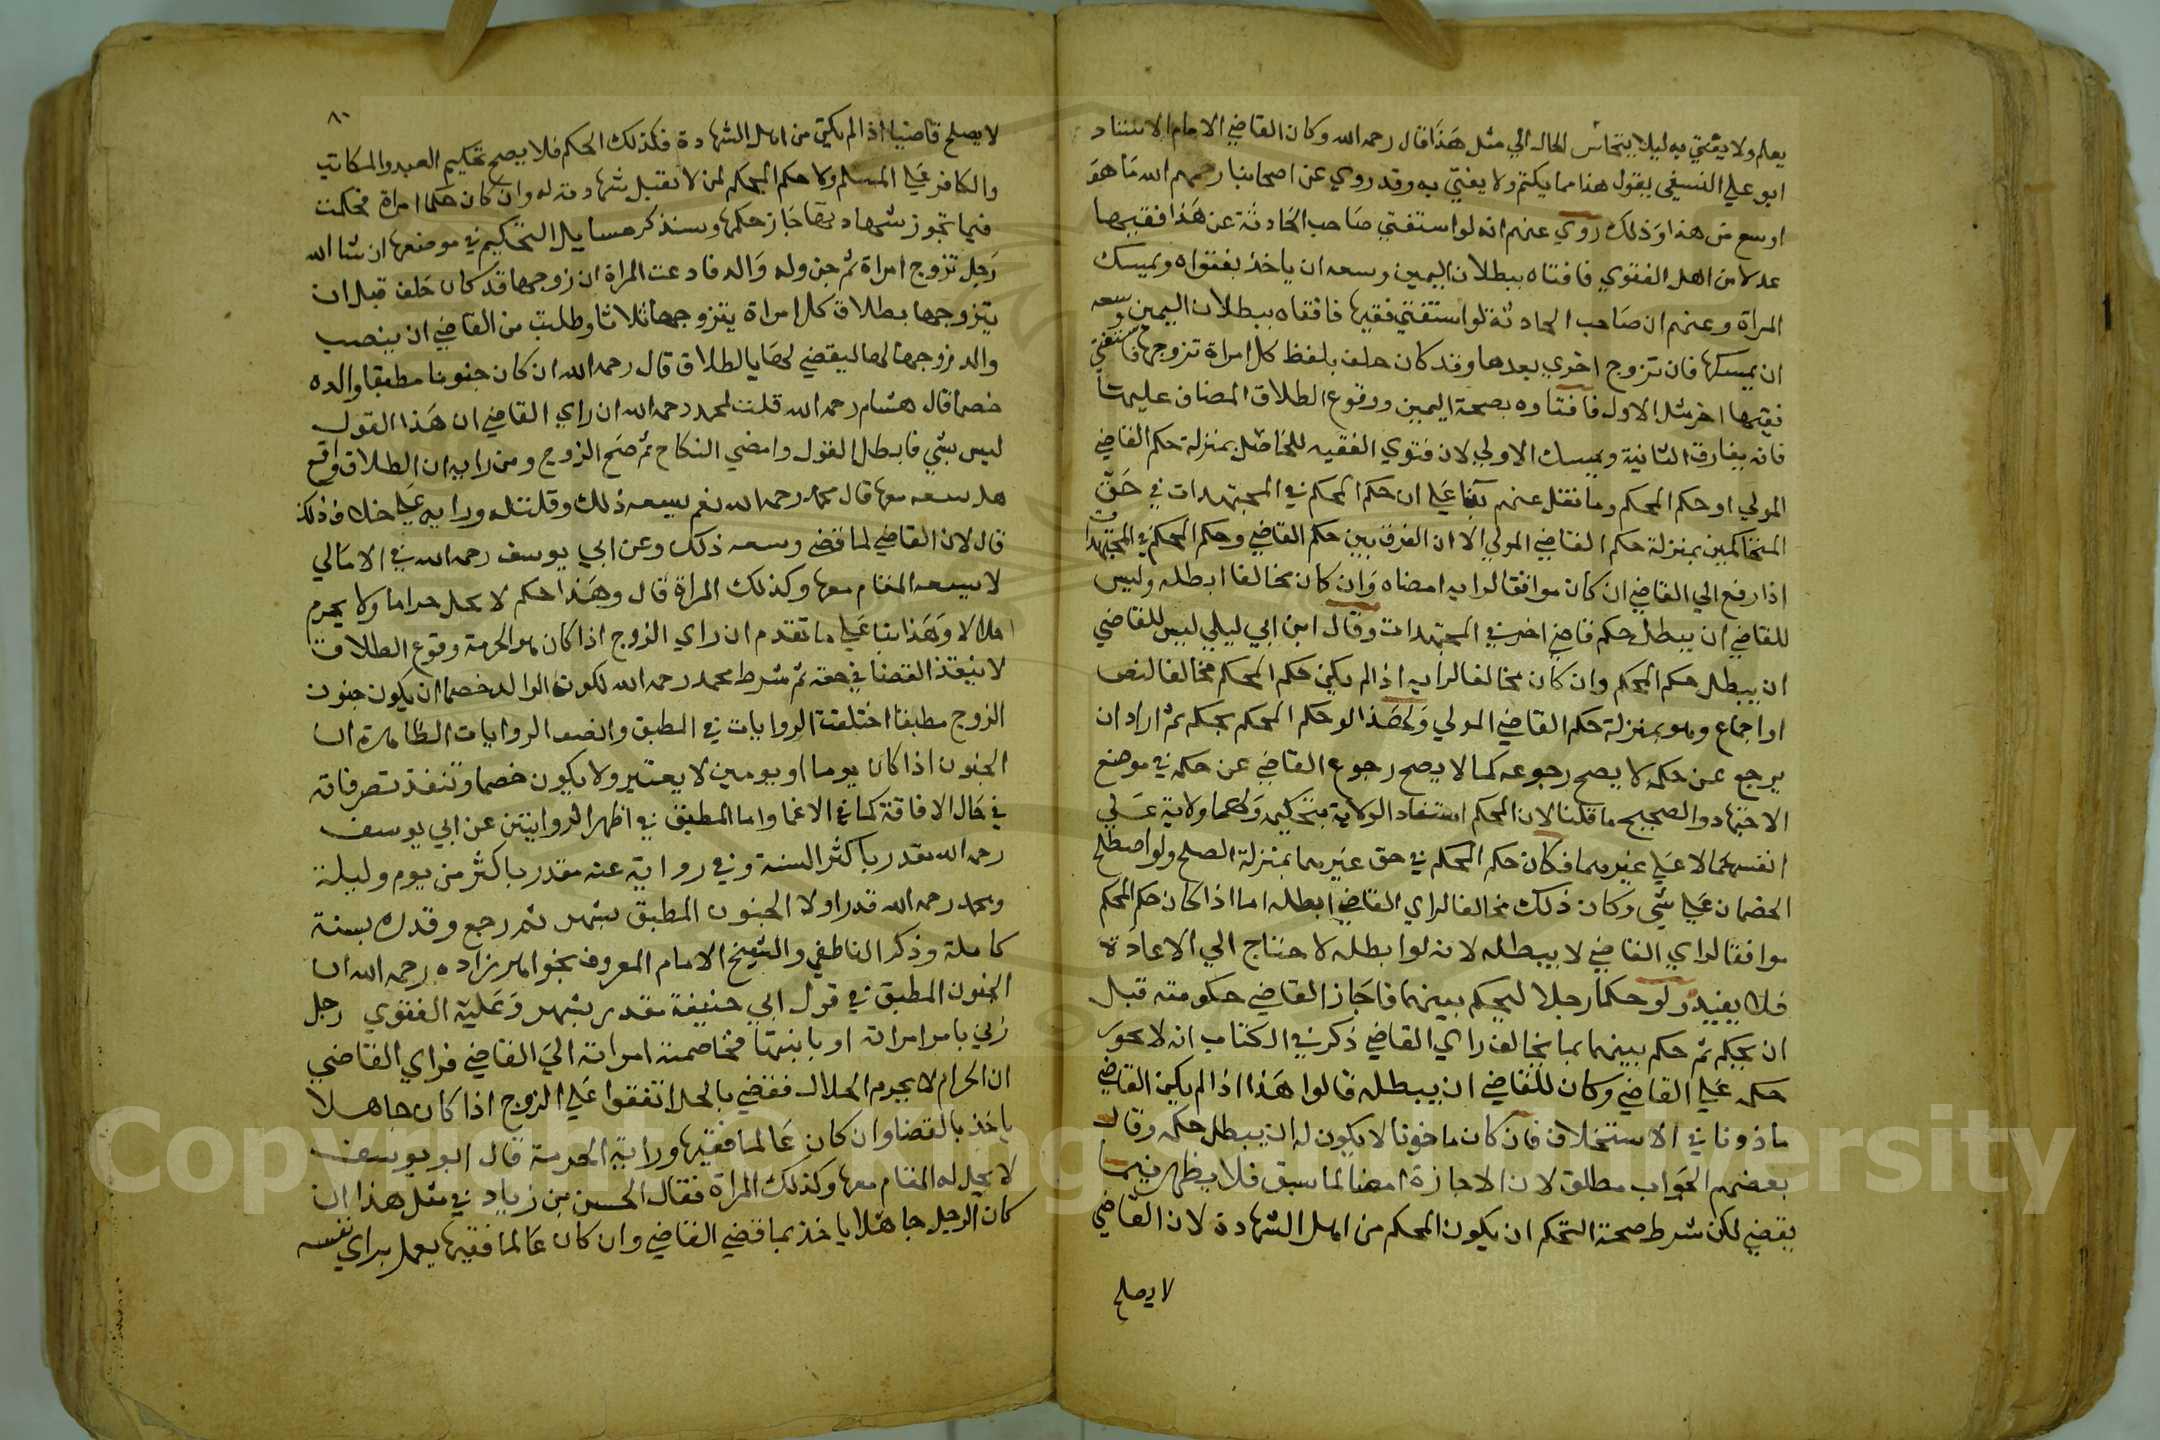 يعلم ولا يفتي به ليلا يتجاسر الجهال الي مثل هذا قال رحمه الله وكان القاضي الامام الاستاد
ابو علي النسفي يقول هذا مما يكتم ولا يفتي به وقد روي عن اصحابنا رحمهم الله ما هو
اوسع من هذا وذلك روي عنهم انه لو استفتي صاحب الحادثة عن هذا فقيها
عدلا من اهل الفقوي فافتاه ببطلان اليمين وسعه ان ياخذ بفتواه ويمسك
المراة وعنهم ان صاحب الحادثة لو استفتي فقيها فافتاه ببطلان اليمين وسعه
ان يمسكها فان تزوج اخري بعدها وقد كان حلف بلفظ كل امراة تزوجها فاستفتي
فقيها اخر مثل الاول فافتاه بصحة اليمين ووقوع الطلاق المضاف عليها
فانه يفارق الثانية ويمسك الاولي لان فتوي الفقيه للجاهل بمنزلة حكم القاضي
المولي او حكم المحكم وما نقل عنهم بناء علي ان حكم المحكم في المجتهدات في حق
المتحاكمين بمنزلة حكم القاضي المولي الا ان الفرق بين حكم القاضي وحكم المحكم في المجتهدات
اذا رفع الي القاضي ان كان موافقا لرايه امضاه وان كان مخالفا ابطله وليس
للقاضي ان يبطل حكم قاضي اخر في المجتهدات وقال ابن ابي ليلي ليس للقاضي
ان يبطل حكم المحكم وان كان مخالفا لرايه اذا لم يكن حكم المحكم مخالفا لنص
او اجماع وهو بمنزلة حكم القاضي المولي ولهذا لو حكم المحكم بحكم ثم اراد ان
يرجع عن حكمه لا يصح رجوعه كما لا يصح رجوع القاضي عن حكمه في موضع
الاجتهاد والصحيح ما قلنا لان المحكم استفاد الولاية بتحكيمهما ولهما ولاية علي
انفسهما لا علي غيرهما فكان حكم المحكم في حق غيرهما بمنزلة الصلح ولو اصطلح
الخصمان علي شي وكان ذلك مخالفا لراي القاضي ابطله اما اذا كان حكم المحكم
موافقا لراي القاضي لا يبطله لانه لو ابطله لاحتاج الي الاعادة
فلا يفيد ولو حكما رجلا ليحكم بينهما فاجاز القاضي حكومته قبل
ان يحكم ثم حكم بينهما بما يخالف راي القاضي ذكر في الكتاب انه لا يجوز
حكمه علي القاضي وكان للقاضي ان يبطله قالوا هذا اذا لم يكن القاضي
ماذونا في الاستخلاف فان كان ماذونا لا يكون له ان يبطل حكمه وقال
بعضهم الجواب مطلق لان الاجازة امضا لما سبق فلا يظهر فيما
يقضي لكن شرط صحة التحكم ان يكون المحكم من اهل الشهادة لان القاضي
لا يصلح
٨٠
لا يصلح قاضيا اذا لم يكن من اهل الشهادة فكذلك الحكم فلا يصح تحكيم العبد والمكاتب
والكافر علي المسلم ولا حكم المحكم لمن لا تقبل شهادته له وان كان حكما امراة فحكمت
فيما تجوز شهادتها جاز حكمها وسنذكر مسايل التحكيم في موضعها ان شا الله
رجل تزوج امراة ثم جن وله والد فادعت المراة ان زوجها قد كان حلف قبل ان
يتزوجها بطلاق كل امراة يتزوجها ثلاثا وطلبت من القاضي ان ينصب
والد زوجها لها ليقضي لها بالطلاق قال رحمه الله ان كان جنونا مطبقا والده
خصما قال هشام رحمه الله قلت لمحمد رحمه الله ان راي القاضي ان هذا القول
ليس بشي فابطل القول وامضي النكاح ثم صح الزوج ومن رايه ان الطلاق واقع
هل يسعه معها قال محمد رحمه الله نعم يسعه ذلك وقلت له ورايه علي خلاف ذلك
قال لان القاضي لما قضي وسعه ذلك وعن ابي يوسف رحمه الله في الامالي
لا يسعه المقام معها وكذلك المراة قال وهذا حكم لا يحل حراما ولا يحرم
حلالا وهذا بنا علي ما تقدم ان راي الزوج اذا كان هو الحرمة وقوع الطلاق
لا ينفذ القضا في حقه ثم شرط محمد رحمه الله لكون الوالد خصما ان يكون جنون
الزوج مطبقا اختلفت الروايات في المطبق واتفقت الروايات الظاهرة ان
الجنون اذا كان يوما او يومين لا يعتبر ولا يكون خصما وتنفذ تصرفاته
في حال الافاقة كما في الاغما واما المطبق في اظهر الروايتين عن ابي يوسف
رحمه الله مقدر باكثر السنة وفي رواية عنه مقدر باكثر من يوم وليلة
ومحمد رحمه الله قدر اولا الجنون المطبق بشهر ثم رجع وقدره بسنة
كاملة وذكر الناطفي والشيخ الامام المعروف بخواهر زاده رحمه الله ان
الجنون المطبق في قول ابي حنيفة مقدر بشهر وعليه الفقوي رجل
زني بام امراته او بابنتها فخاصمته امراته الي القاضي فراي القاضي
ان الحرام لا يحرم الحلال فقضي بالحل اتفقوا علي الزوج اذا كان جاهلا
ياخذ بالقضا وان كان عالما فقيها ورايه الحرمة قال ابو يوسف
لا يحل له المقام معها وكذلك المراة فقال الحسن بن زياد في مثل هذا ان
كان الرجل جاهلا ياخذ بما قضي القاضي وان كان عالما فقيها يعمل براي نفسه
Copyright © King Saud University